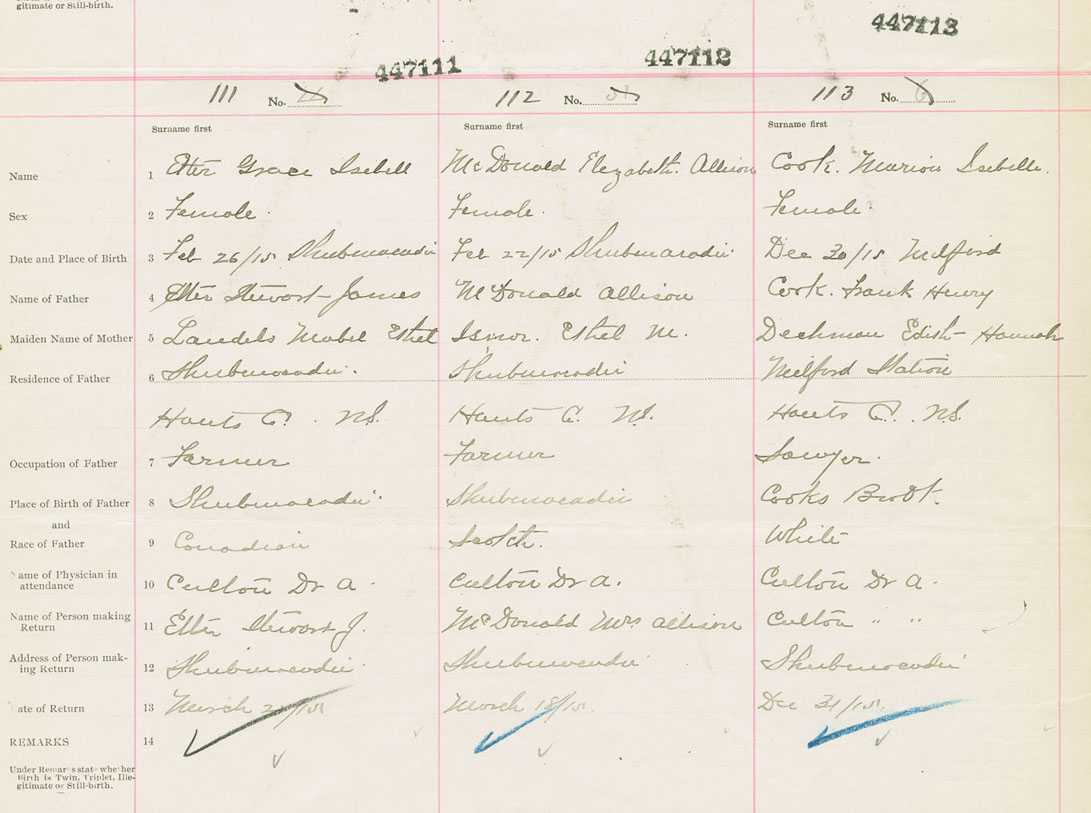 gitimate or Still-birth.
447111 447112 447113
111 No. 112 No. 113 No.
Surname first Surname first Surname first
Name 1 Etter Grace Isebell McDonald Elezabeth. Allison Cook. Marion Isebelle.
Sex 2 Female. Female. Female.
Date and Place of Birth 3 Feb 26/15. Shubenacadie Feb 22/15 Shubenacadie Dec 30/15 Milford
Name of Father 4 Etter Stewart James McDonald Allison Cook. Frank Henry
Maiden Name of Mother 5 Landels Mabel Ethel Isnor. Ethel M. Dechman Edith Hannah
Residence of Father 6 Shubenacadie. Shubenacadie Milford Station
Hants C. NS. Hants C. NS. Hants C. NS.
Occupation of Father 7 Farmer Farmer Sawyer.
Place of Birth of Father 8 Shubenacadie. Shubenacadie Cooks Brook.
and
Race of Father 9 Canadian Scotch. White
ame of Physician in
attendance 10 Culton Dr A. Culton Dr A. Culton Dr A.
Name of Person making
Return 11 Etter Stewart J. McDonald Mrs Allison Culton " "
Address of Person mak-
ing Return 12 Shubenacadie. Shubenacadie Shubenacadie
ate of Return 13 March /15 March 18/15. Dec 31/15.
REMARKS 14
Under Remarks state whether
Birth is Twin, Triplet, Ille-
gitimate or Still-birth.